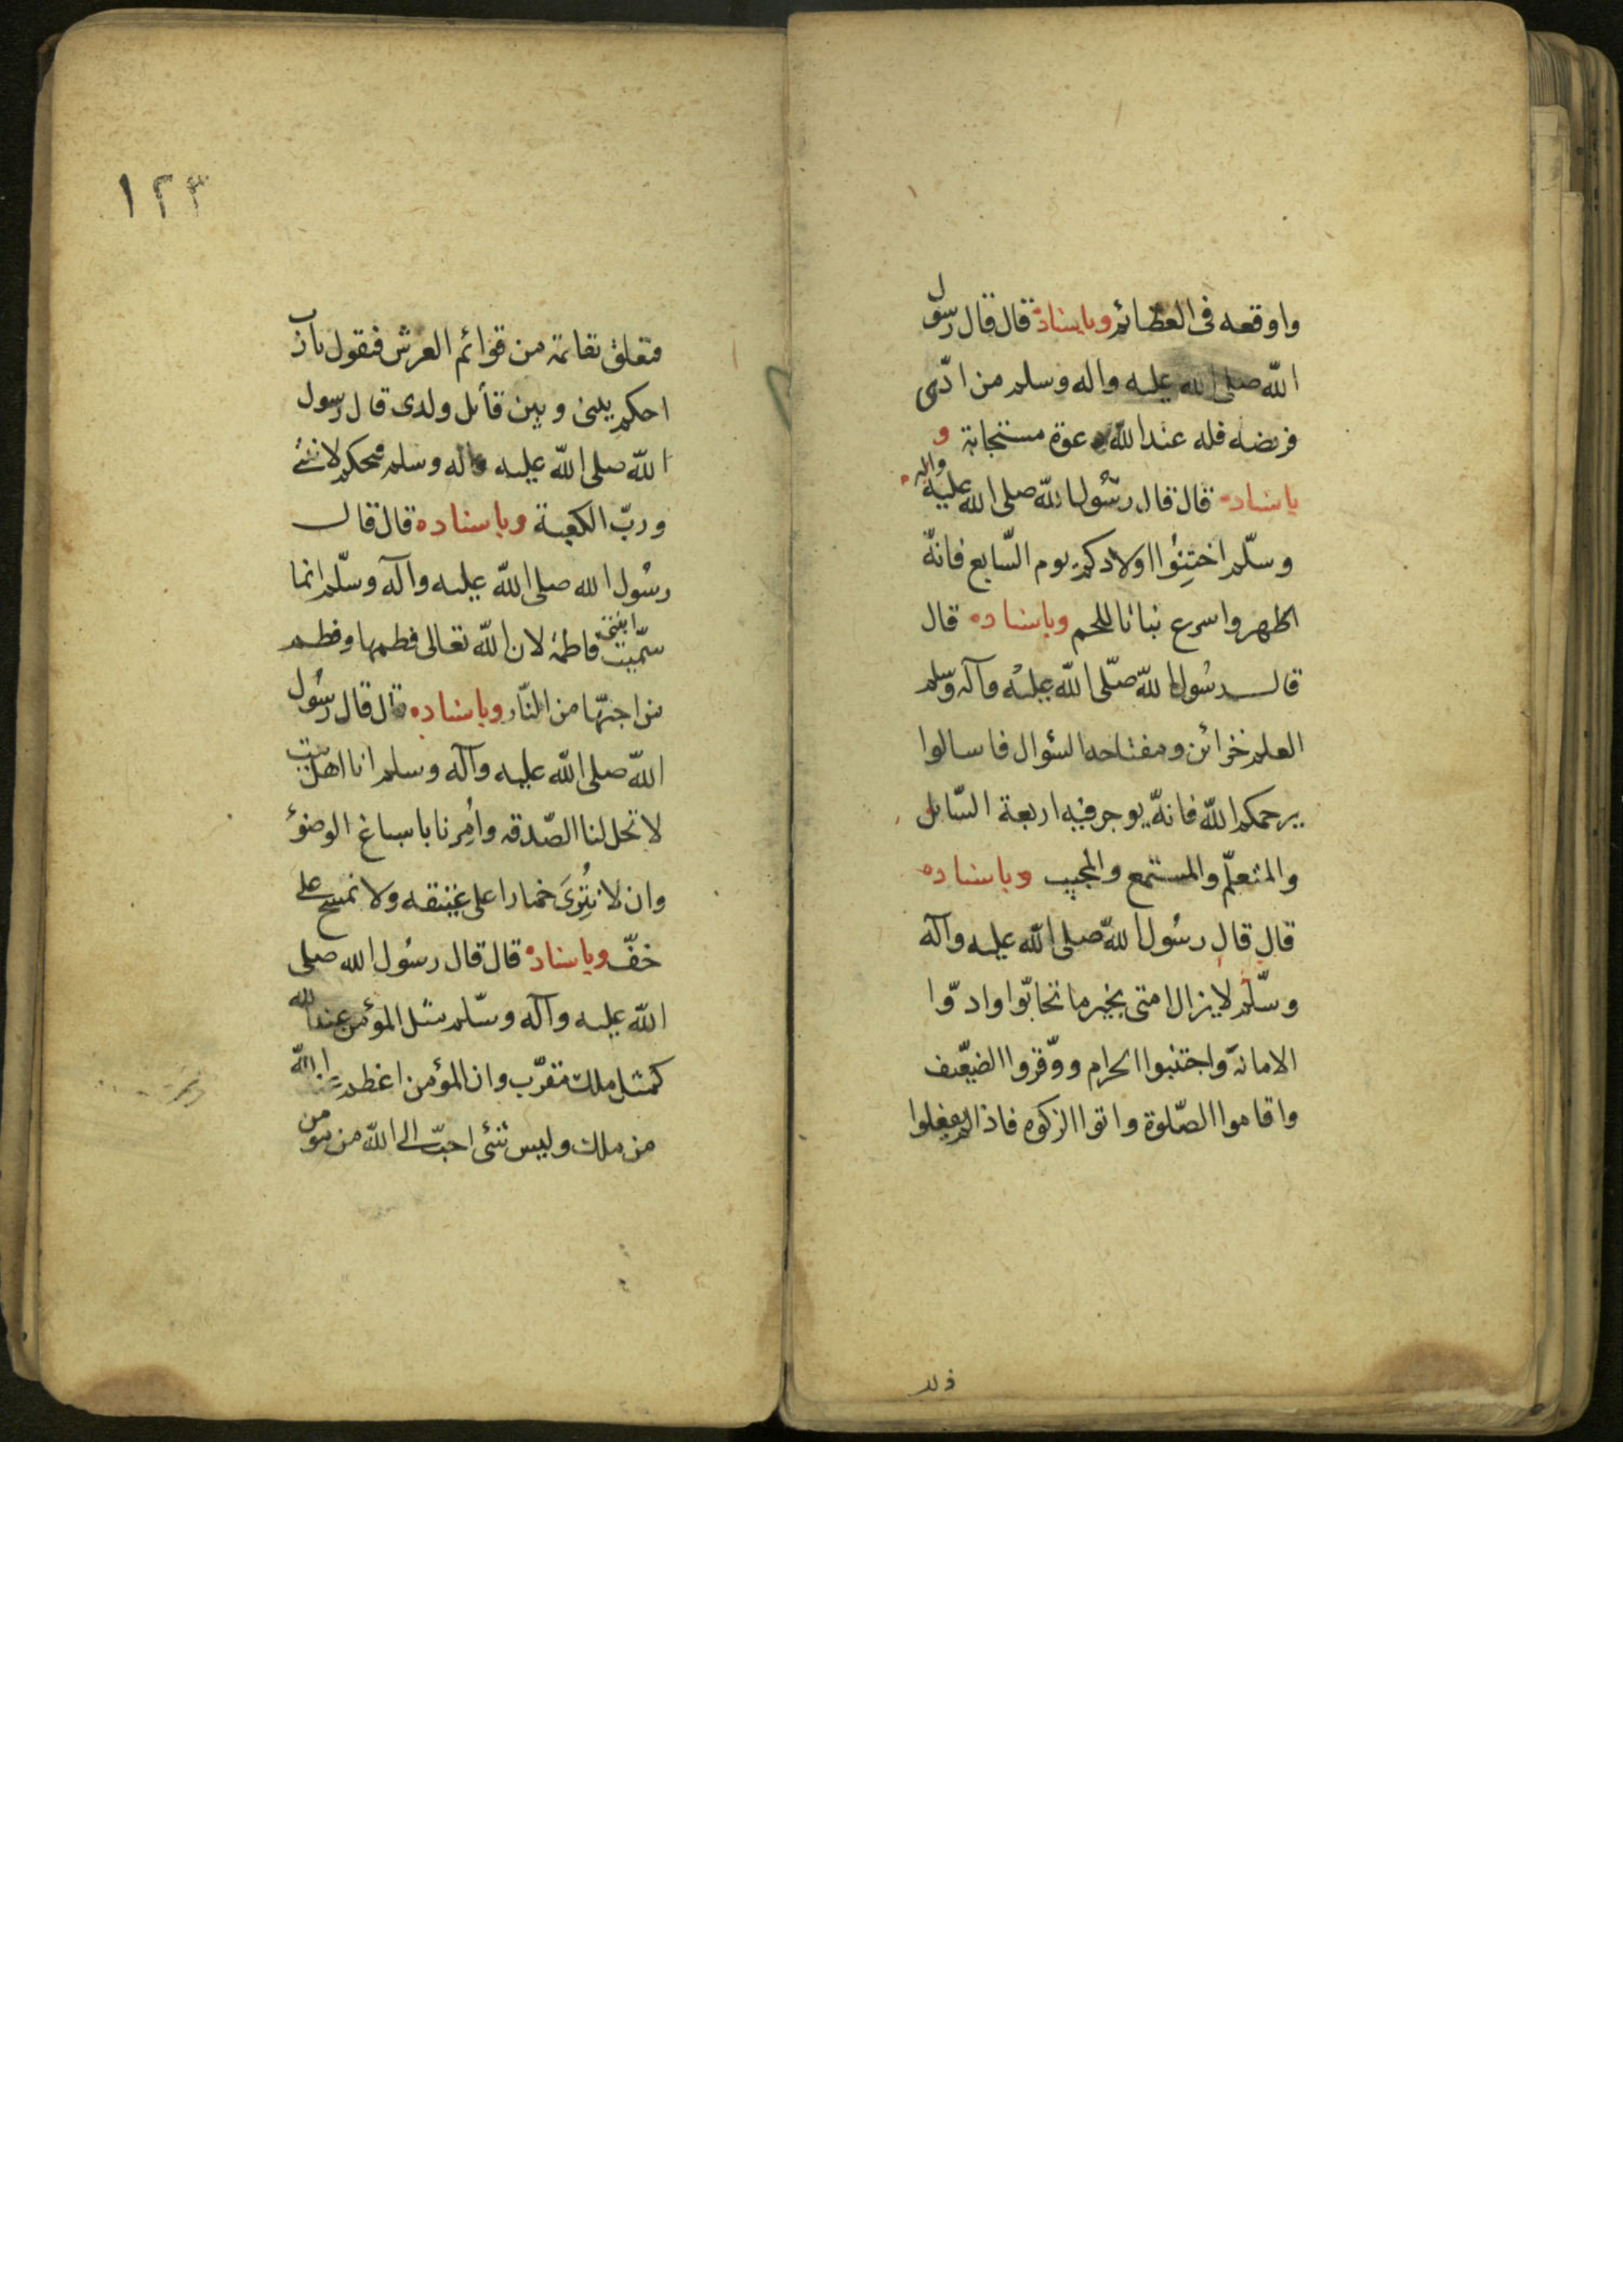 واوقعه فى العظائم وباسناده قال قال رسول
الله صلى الله عليه واله وسلم من ادّى
فريضه فله عند الله دعوة مستجابة و
باسناده قال قال رسُول الله صلى الله عليه واله
وسلّم اختِنُوا اولادكم يوم السّابع فانّه
اطهر واسرع نباتا للحم وباسناده قال
قال رسُول الله صلّى الله عليه وآله وسلم
العلم خزائن ومفتاحه السُوال فاسالوا
يرحمكم الله فانّه يوجر فيه اربعة السّائل
والمتعلّم والمستمع والمجيب وباسناده
قال قال رسُول الله صلى الله عليه وآله
وسلّم لايزال امتى بخير ما تحابّوا وادّوا
الامانة واجتنبوا الحرام ووقّروا الضيّف
واقاموا الصّلوة واتوا الزكوه فاذا لم يفعلوا
ذلك
١٢٣
فتعلق بقائمة من قوائم العرش فتقول يارب
احكم بينى وبين قاتل ولدى قال رسول
الله صلى الله عليه واله وسلم فيحكم لابنتى
وربّ الكعبة وباسناده قال قال
رسُول الله صلى الله عليه وآله وسلّم انما
سمّيت ابنتى فاطمة لان الله تعالى فطمها وفطم
من احبّها من النّار وباسناده قال قال رسُول
الله صلى الله عليه وآله وسلم انا اهل بيت
لا تحل لنا الصّدقه واُمِرنا باسباغ الوضوُء
وان لا نُنزِىَ حمارا على عتيقه ولا نمسح على
خفّ وباسناده قال قال رسُول الله صلى
الله عليه وآله وسلّم مثل المؤمن عند الله
كمثل ملك مقرّب وان المؤمن اعظم عند الله
من ملك وليس شئ احبّ الى الله من مومن